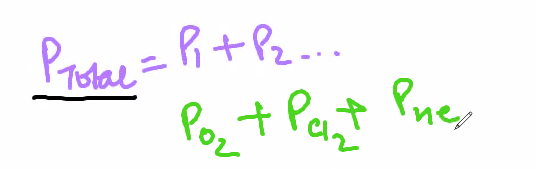 P_Total = P_1 + P_2 ...
P_O_2 + P_Cl_2 + P_ne